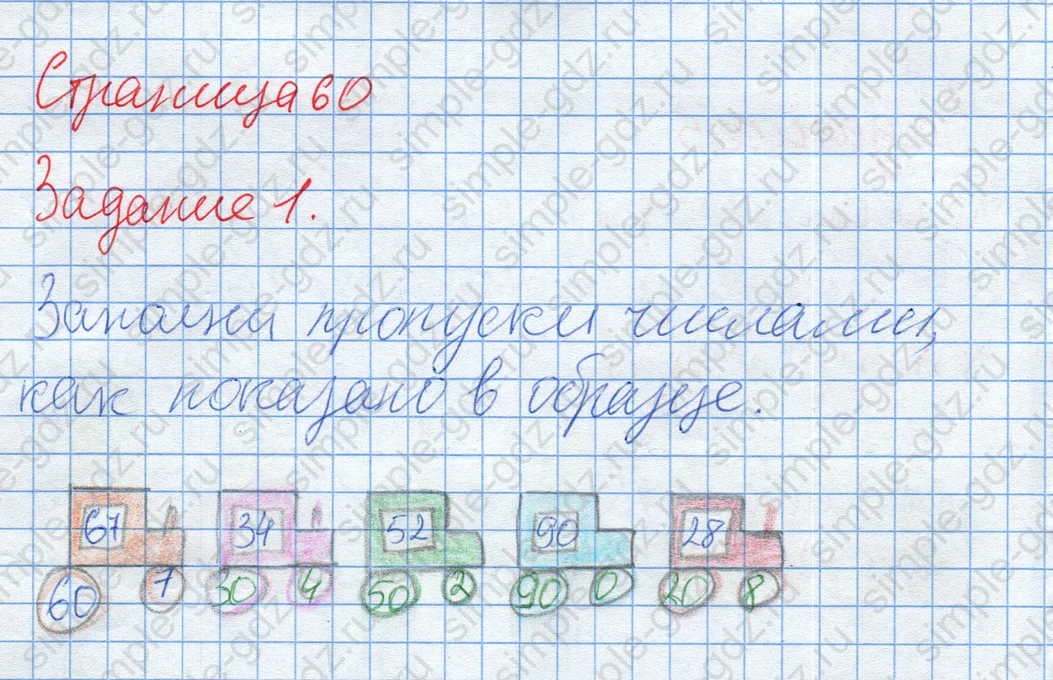 Страница 60
Задание 1.
Заполни пропуски числами,
как показано в образце.
67 34 52 90 28
60 7 30 4 50 2 90 0 20 8
simple-gdz.ru